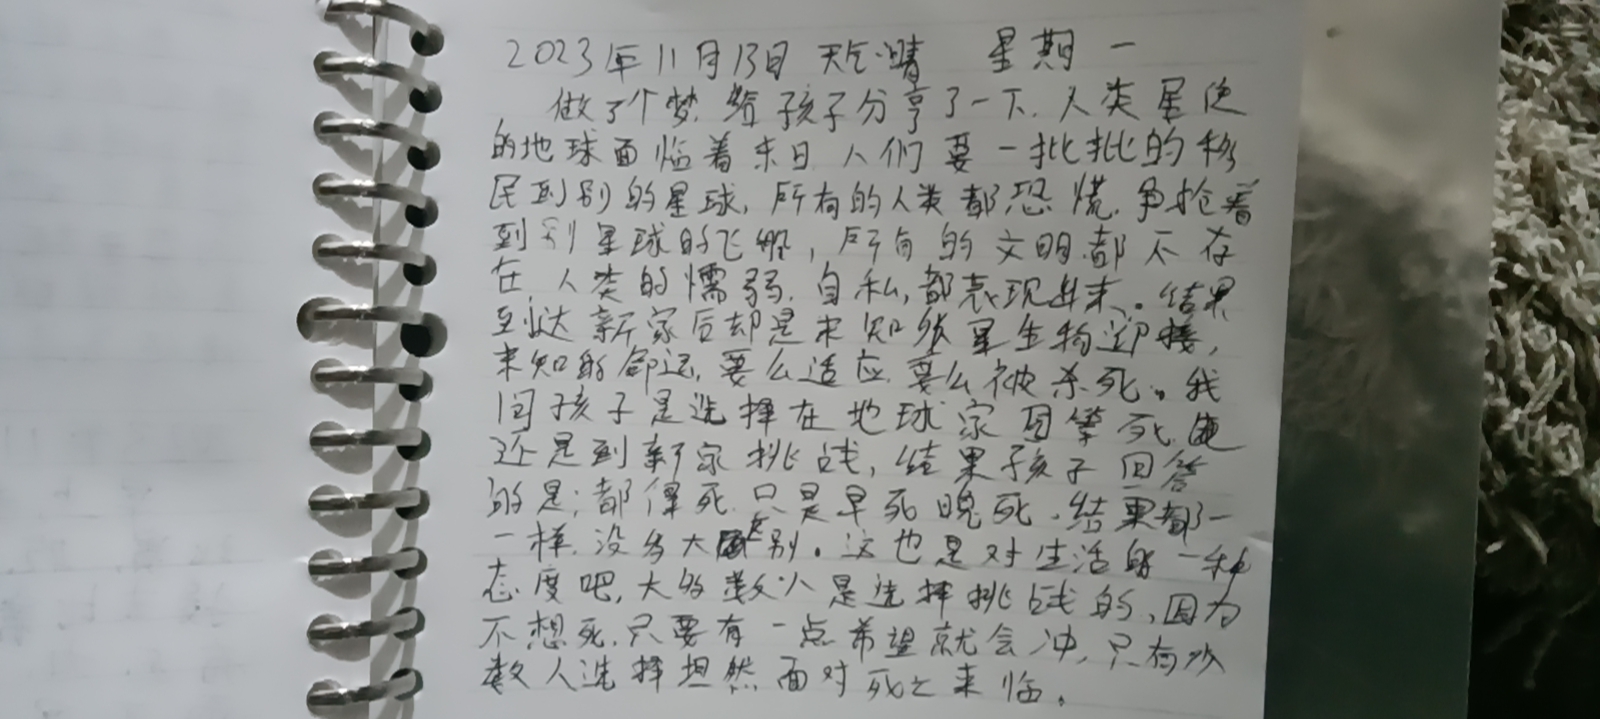 2023年11月13日 天气:晴 星期一
做了个梦.给孩子分享了一下.人类居住
的地球面临着末日.人们要一批批的移
民到别的星球,所有的人类都恐慌.争抢着
到别星球的飞船,所有的文明都不存
在 人类的懦弱.自私,都表现出来。结果
到达新家后却是未知外星生物迎接,
未知的命运,要么适应.要么被杀死。我
问孩子是选择在地球家园等死
还是到新家挑战,结果孩子回答
的是:都得死.只是早死晚死.结果都一
一样.没多大区别。这也是对生活的一种
态度吧,大多数人是选择挑战的,因为
不想死.只要有一点希望就会冲,只有少
数人选择坦然面对死亡来临。